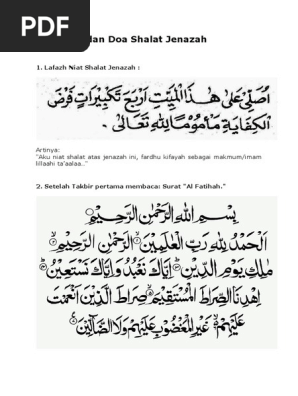 PDF
dan Doa Shalat Jenazah
1. Lafazh Niat Shalat Jenazah :
اُصَلِّيْ عَلَى هٰذَا الْمَيِّتِ اَرْبَعَ تَكْبِيْرَاتٍ فَرْضَ
الْكِفَايَةِ مَأْمُوْمًا لِلّٰهِ تَعَالَى.
Artinya:
"Aku niat shalat atas jenazah ini, fardhu kifayah sebagai makmum/imam
lillaahi ta'aalaa.."
2. Setelah Takbir pertama membaca: Surat "Al Fatihah."
بِسْمِ اللهِ الرَّحْمٰنِ الرَّحِيْمِ
اَلْحَمْدُ لِلّٰهِ رَبِّ الْعٰلَمِيْنَ الرَّحْمٰنِ الرَّحِيْمِ
مٰلِكِ يَوْمِ الدِّيْنِ اِيَّاكَ نَعْبُدُ وَاِيَّاكَ نَسْتَعِيْنُ
اِهْدِنَا الصِّرَاطَ الْمُسْتَقِيْمَ صِرَاطَ الَّذِيْنَ اَنْعَمْتَ
عَلَيْهِمْ غَيْرِ الْمَغْضُوْبِ عَلَيْهِمْ وَلَا الضَّالِّيْنَ